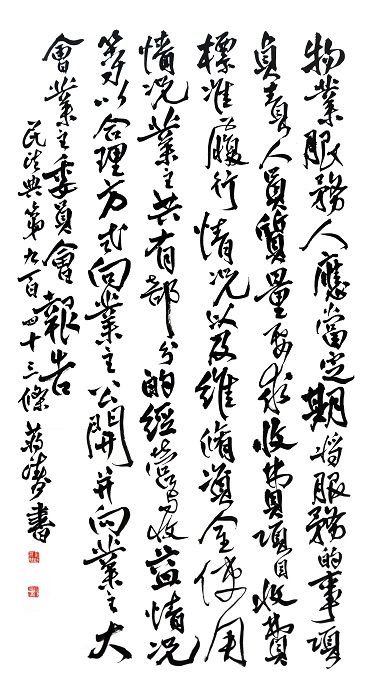 物業服務人應當定期将服務的事項
負責人員質量要求收費項目收費
標准履行情况以及維脩資金使用
情况業主共有部分的經營與收益情况
等以合理方式向業主公開并向業主大
會業主委員會報告
民法典第九百四十三條 蔣書